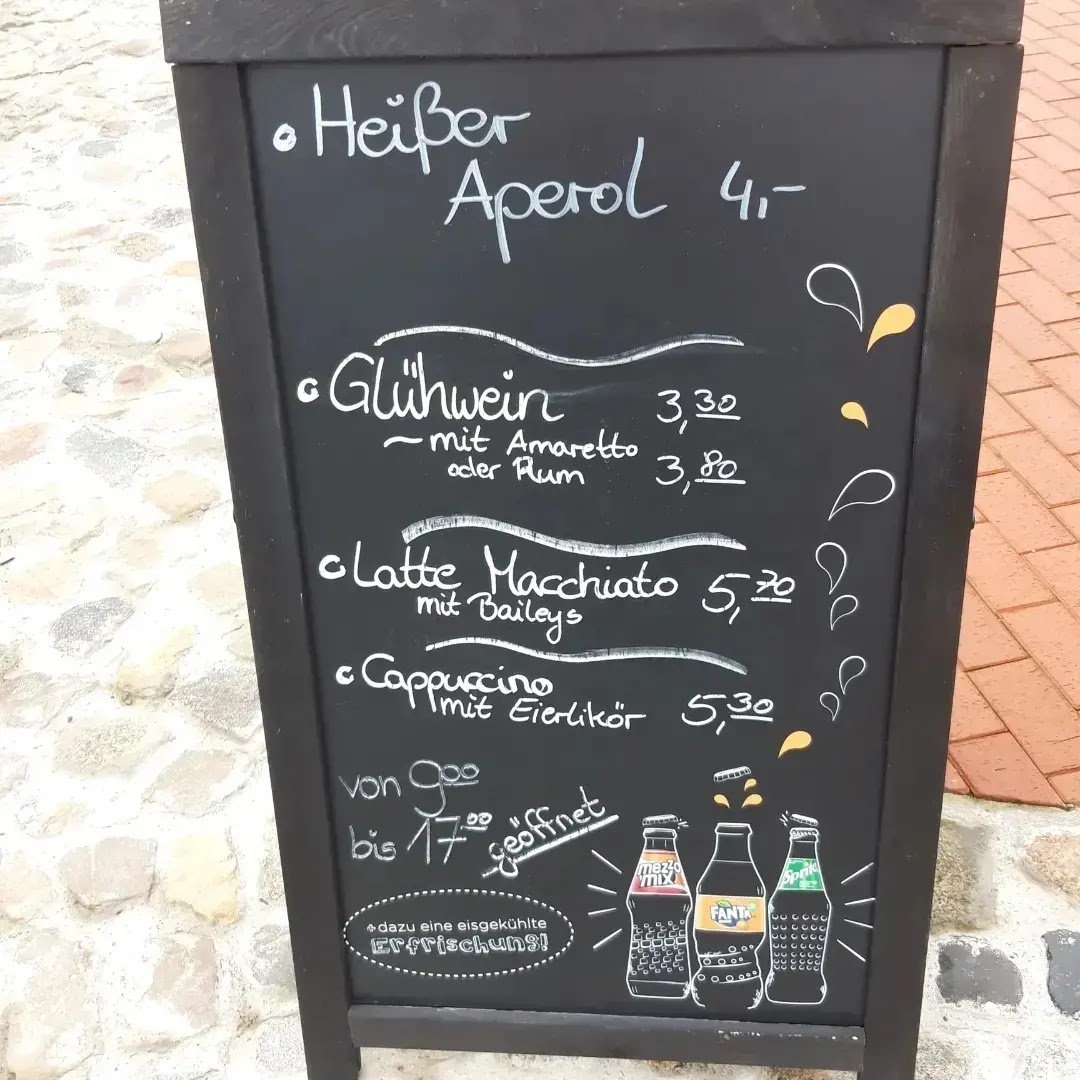 Heißer
Aperol 4,-
Glühwein 3,30
~ mit Amaretto
oder Rum 3,80
Latte Macchiato 5,70
mit Baileys
Cappuccino
mit Eierlikör 5,30
von 900
bis 1700 geöffnet
+ dazu eine eisgekühlte
Erfrischung!
mezzo mix
FANTA
Sprite